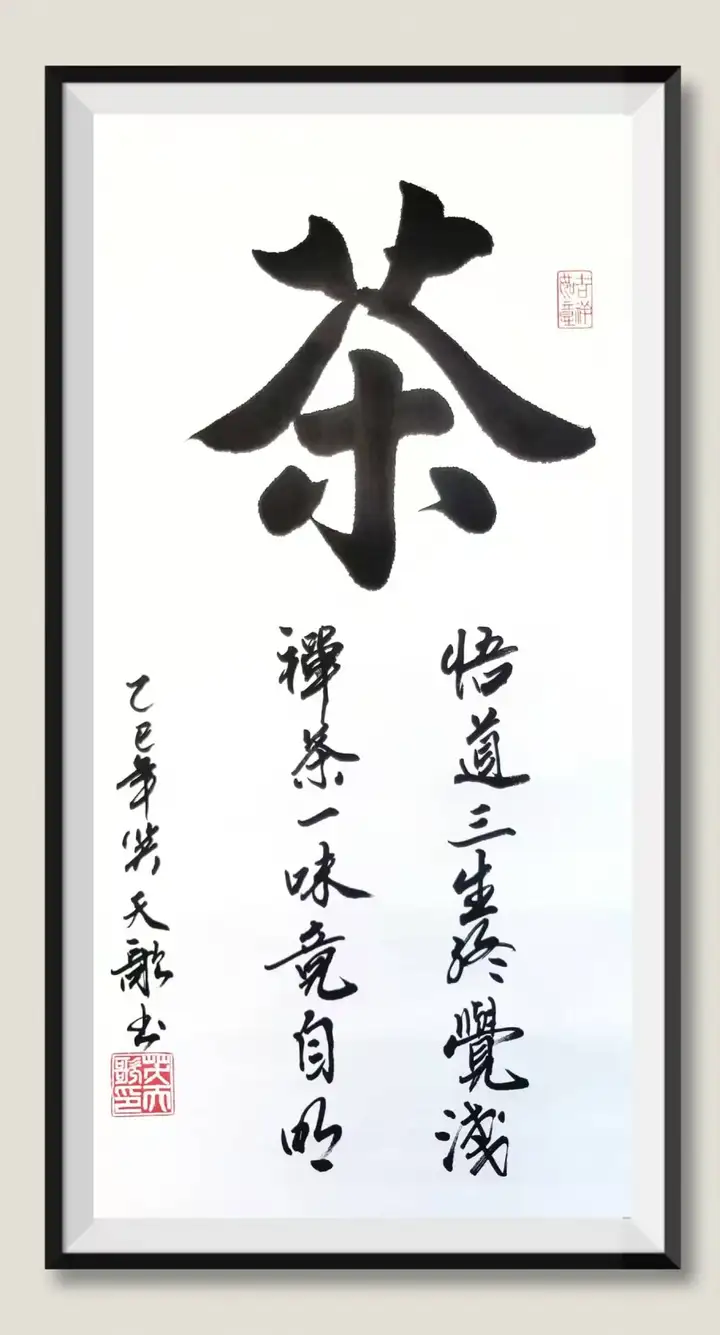 茶
吉祥
如意
悟道三生終覺淺
禪茶一味竟自明
乙巳年 天歌书